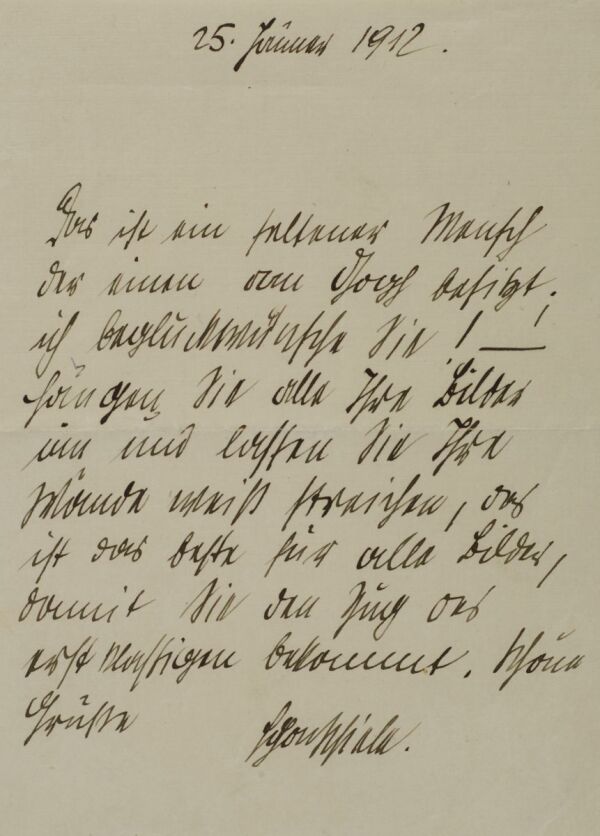 25. Jänner 1912.
Das ist ein seltener Mensch
der einen van Gogh besitzt.
ich beglückwünsche Sie ! — !
hängen Sie alle Ihre Bilder
um und lassen Sie Ihre
Wände weiß streichen, das
ist das beste für alle Bilder,
damit Sie den Zug des
erstklassigen bekommt. Schöne
Grüße
Egon Schiele.